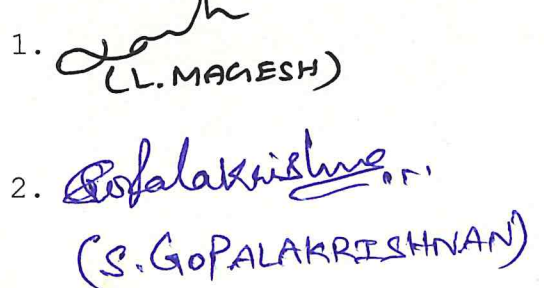 1.
(L. MAGESH)
2. Gopalakrishna...
(S. GOPALAKRISHNAN)